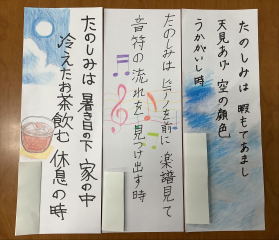 たのしみは 暇もてあまし
天見あげ 空の顔色
うかがいし時
たのしみは ピアノを前に 楽譜見て
音符の流れを 見つけ出す時
たのしみは 暑き日の下 家の中
冷えたお茶飲む 休息の時